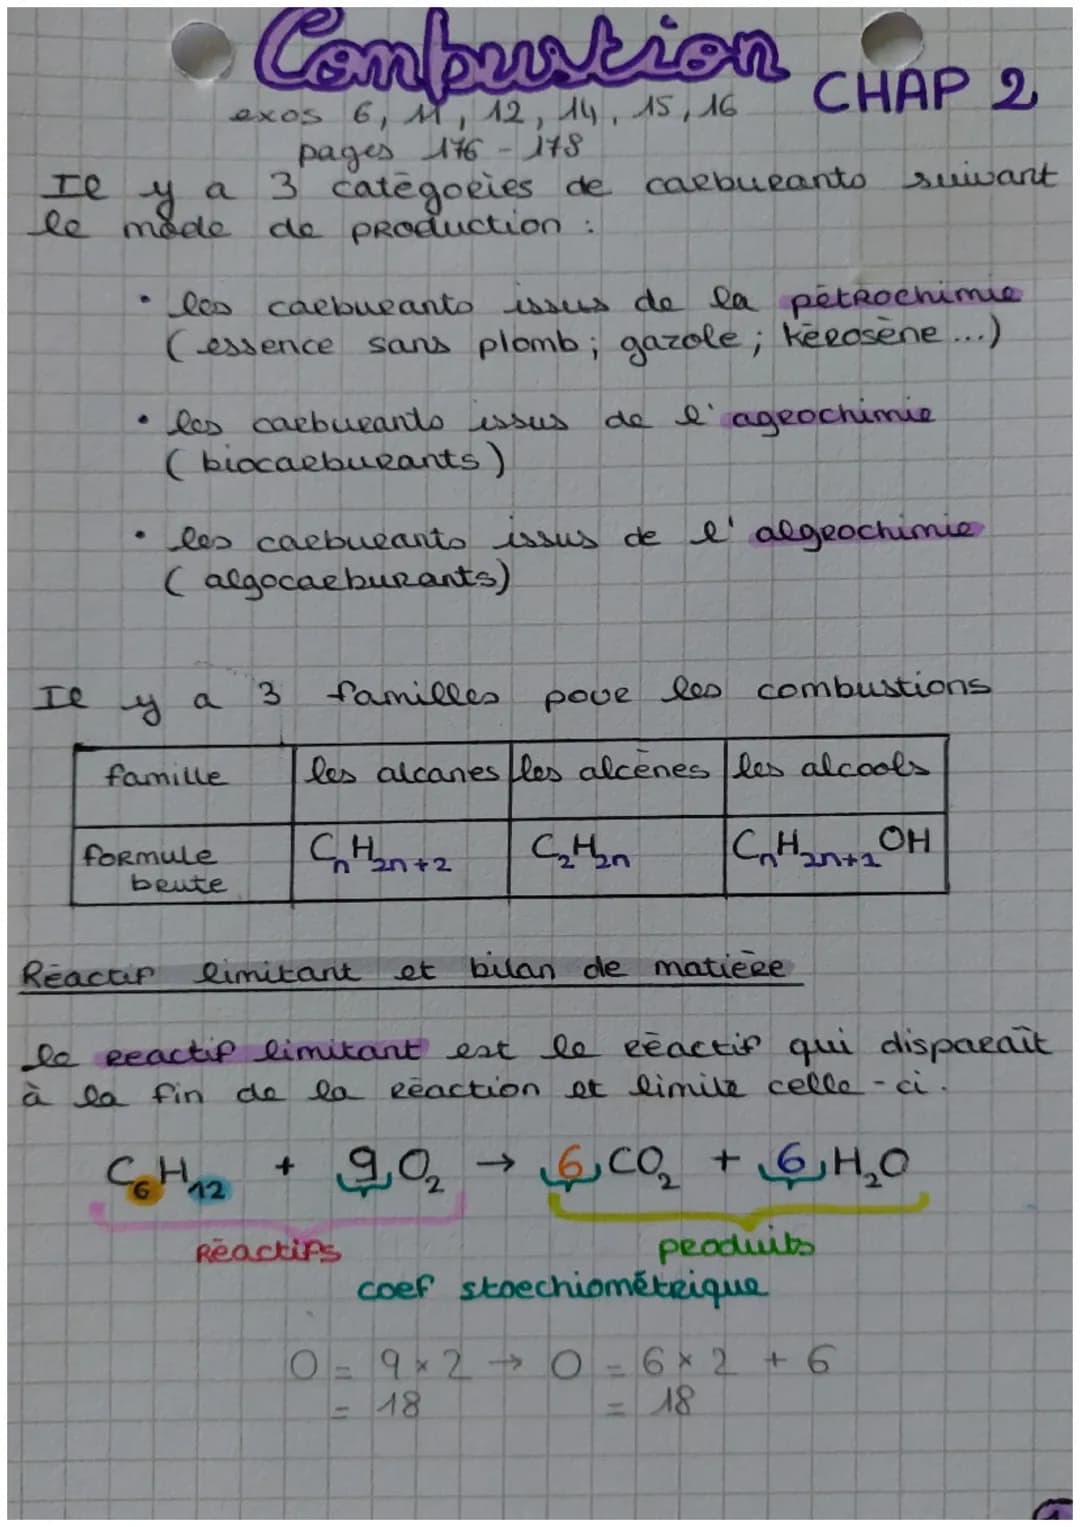 Combustion
CHAP 2
exos 6, 11, 12, 14, 15, 16
pages 176 - 178
Il y a 3 catégories de carburants suivant
le mode de production :
• les carburants issus de la pétrochimie
(essence sans plomb ; gazole ; kérosène ...)
• les carburants issus de l'agrochimie
(biocarburants)
• les carburants issus de l'algrochimie
(algocarburants)
Il y a 3 familles pour les combustions
famille les alcanes les alcènes les alcools
formule brute CₙH₂ₙ₊₂ C₂H₂ₙ CₙH₂ₙ₊₁OH
Réactif limitant et bilan de matière
le reactif limitant est le réactif qui disparaît
à la fin de la réaction et limite celle-ci.
C₆H₁₂ + 9O₂ → 6CO₂ + 6H₂O
Réactifs produits
coef stoechiométrique
O = 9 × 2 → O = 6 × 2 + 6
= 18 = 18